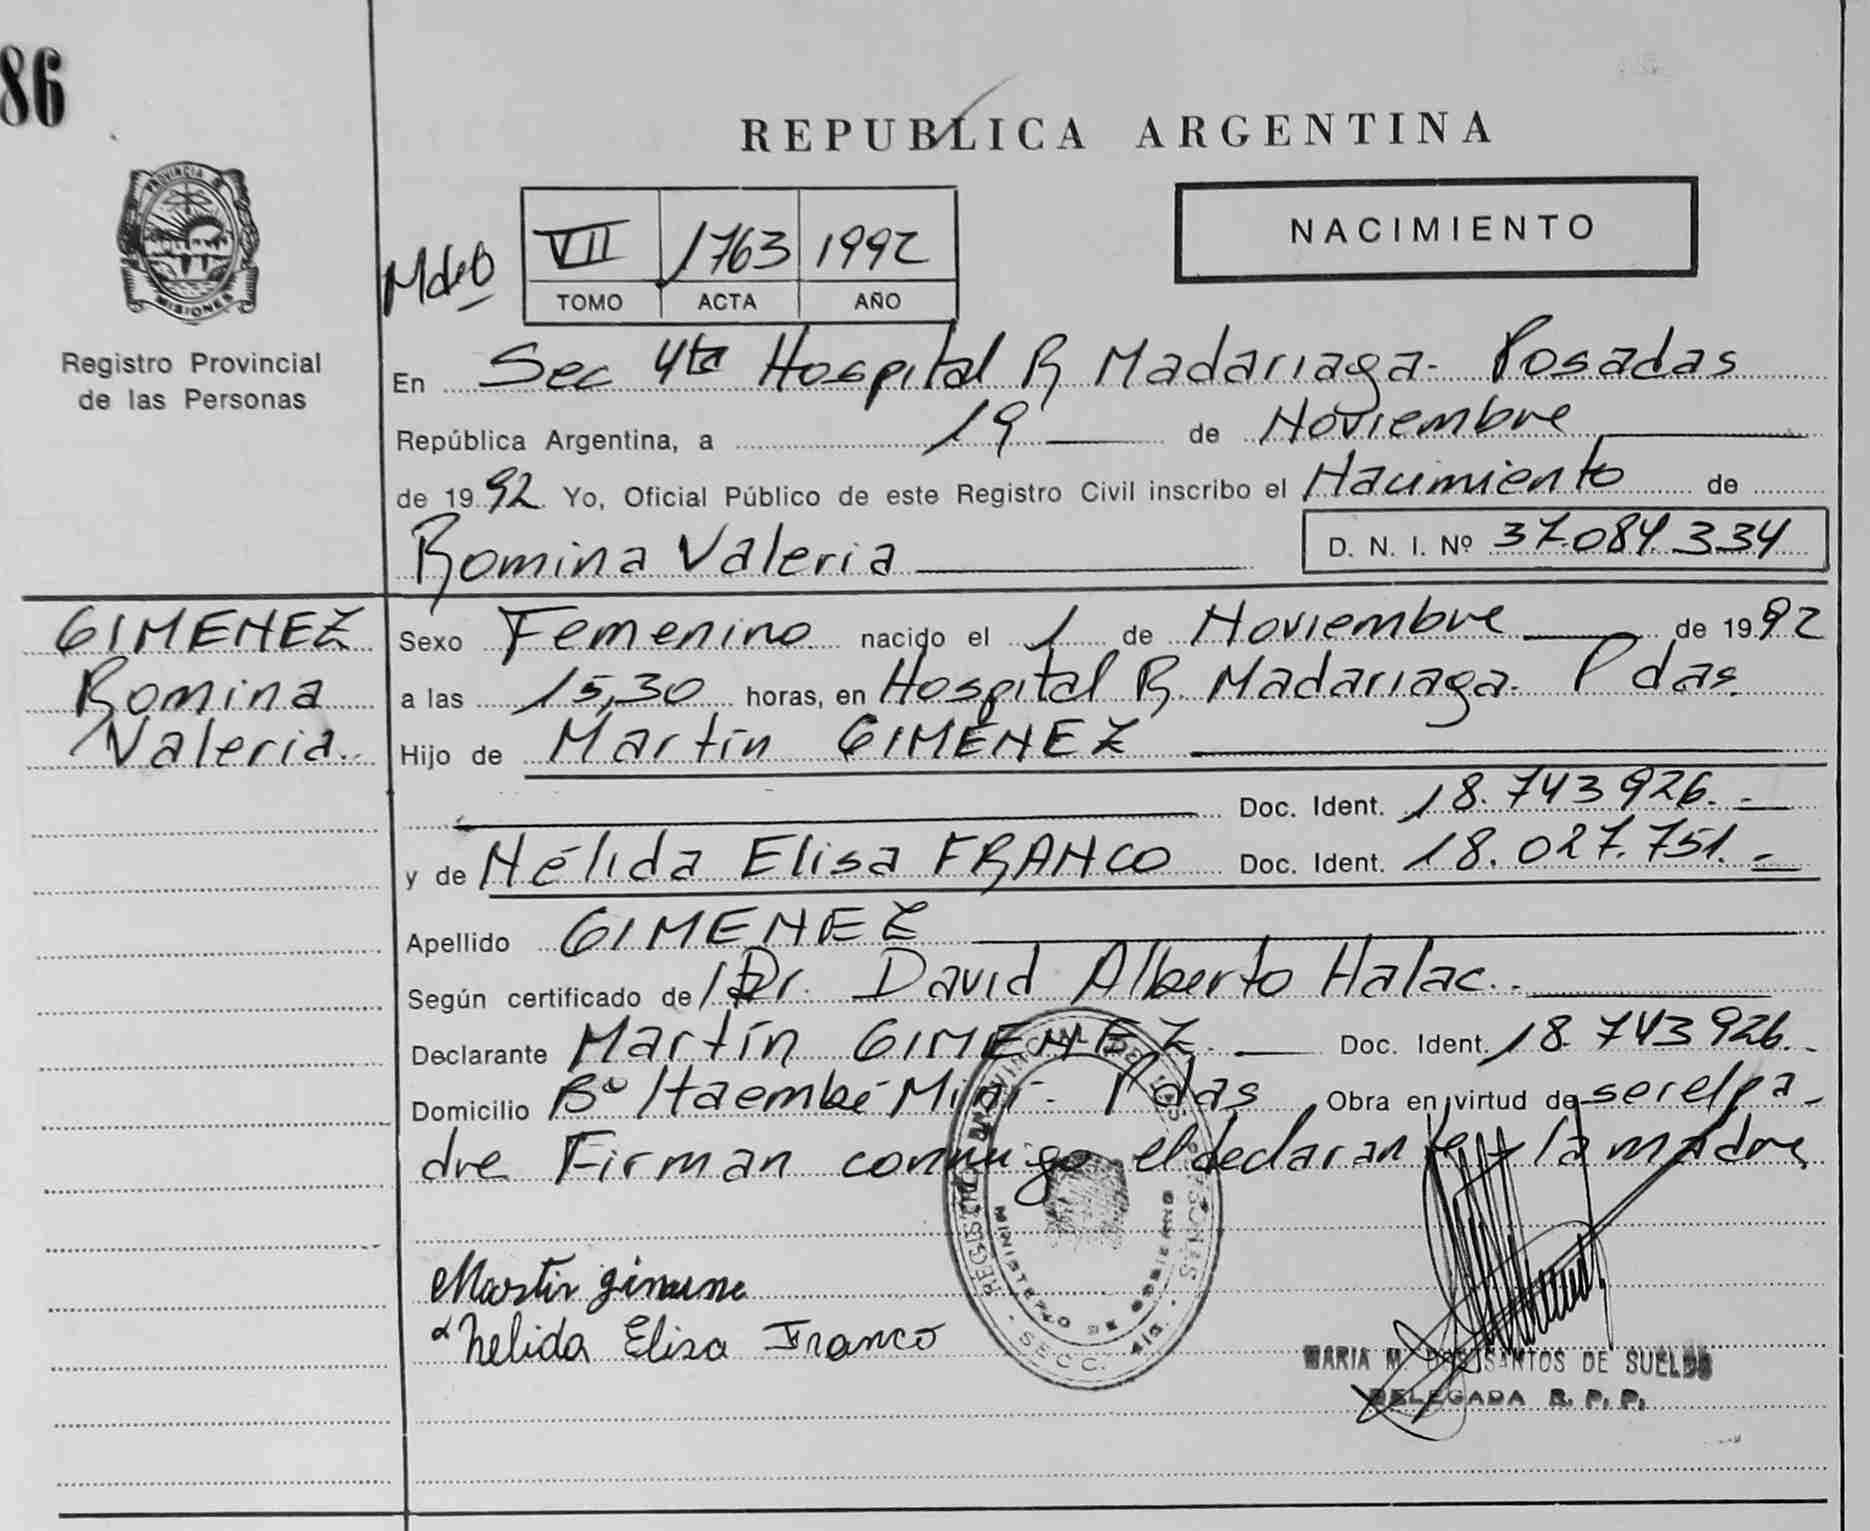 86
REPUBLICA ARGENTINA
PROVINCIA DE
MISIONES
Registro Provincial
de las Personas
VII 1763 1992
TOMO ACTA AÑO
NACIMIENTO
En Sec 4ta Hospital R Madariaga- Posadas
República Argentina, a 19 de Noviembre
de 1992 Yo, Oficial Público de este Registro Civil inscribo el Nacimiento de
Romina Valeria D. N. I. Nº 37.084.334
GIMENEZ
Romina
Valeria.
Sexo Femenino nacido el 1 de Noviembre de 1992
a las 15,30 horas, en Hospital R. Madariaga- Pdas.
Hijo de Martín GIMÉNEZ
Doc. Ident. 18.743926.-
y de Nélida Elisa FRANCO Doc. Ident. 18.027.751.-
Apellido GIMENEZ
Según certificado de Dr. David Alberto Halac.-
Declarante Martín GIMENEZ. Doc. Ident. 18.743926.-
Domicilio Bº Itaembé Miní- Pdas Obra en virtud de ser el pa-
dre Firman conmigo el declarante y la madre
REGISTRO PROVINCIAL DE LAS PERSONAS
MINISTERIO DE GOBIERNO
SECC.
Martin gimene
Nelida Elisa Franco
MARIA M. DOS SANTOS DE SUELDO
DELEGADA R. P. P.